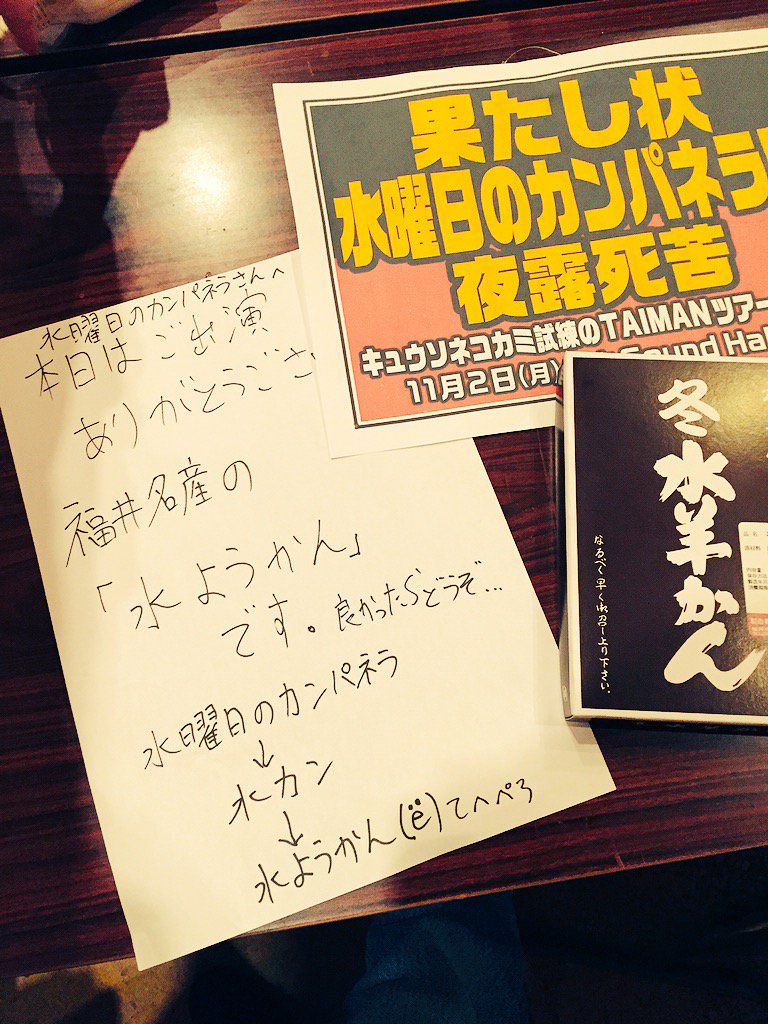 果たし状
水曜日のカンパネラ
夜露死苦
キュウソネコカミ試練のTAIMANツアー
11月2日(月)
Sound Hal
水曜日のカンパネラさんへ
本日はご出演
ありがとうござ
福井名産の
「水ようかん」
です。良かったらどうぞ…
水曜日のカンパネラ
↓
水カン
↓
水ようかん(ë)てへぺろ
冬水羊かん
なるべく早くお召し上り下さい。